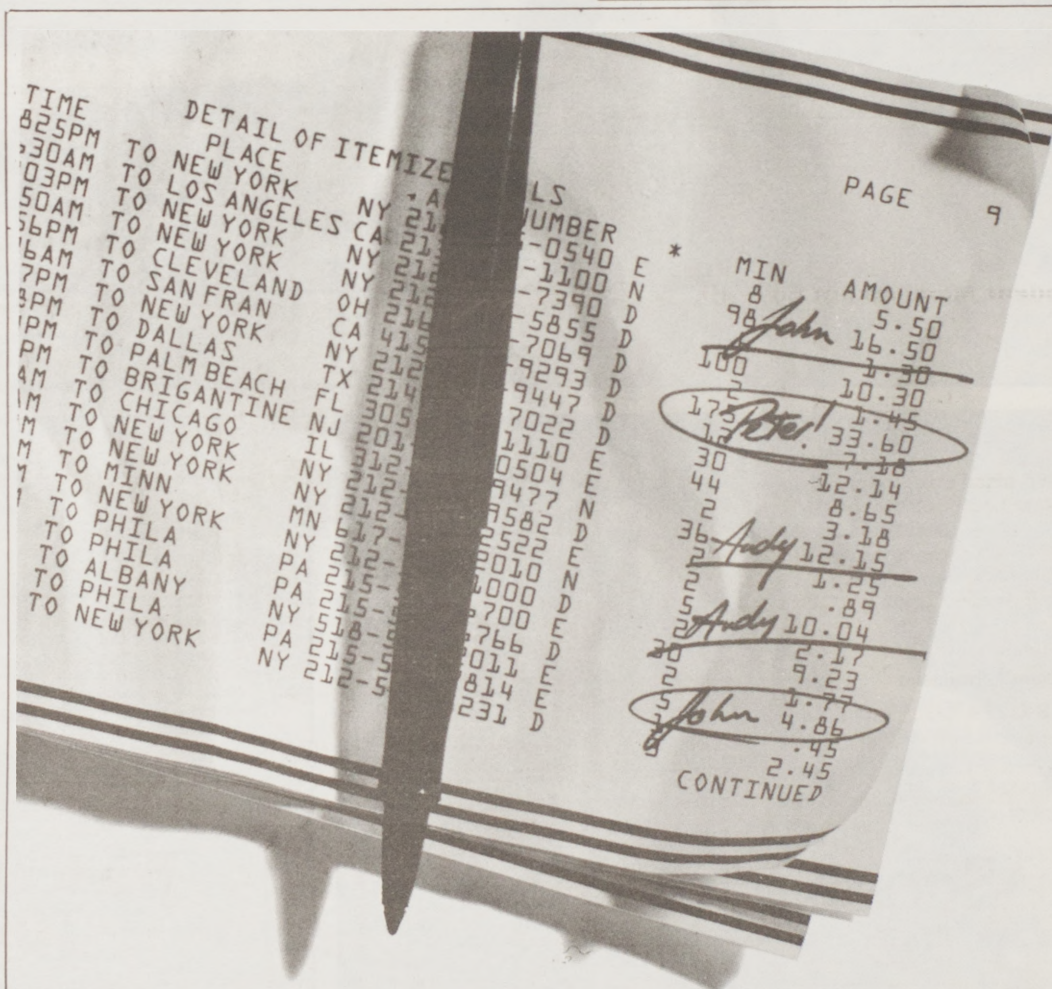 DETAIL OF ITEMIZE LS PAGE 9
TIME PLACE A NUMBER * MIN AMOUNT
825PM TO NEW YORK NY -0540 E 8 5.50
30AM TO LOS ANGELES CA -1100 N 98 John 16.50
03PM TO NEW YORK NY -7390 D 1.30
50AM TO NEW YORK NY -5855 D 100 10.30
56PM TO CLEVELAND OH -7069 D 2 1.45
16AM TO SAN FRAN CA 415 -9293 D 175 Peter! 33.60
7PM TO NEW YORK NY 212 9447 D 7.18
PM TO DALLAS TX 214 7022 D 30 12.14
PM TO PALM BEACH FL 305 1110 E 44 8.65
PM TO BRIGANTINE NJ 0504 E 2 3.18
AM TO CHICAGO IL 312 9477 N 36 Andy 12.15
M TO NEW YORK NY 212 9582 D 2 1.25
M TO NEW YORK NY 212 2522 E 2 .89
M TO MINN MN 617- 2010 N 5 Andy 10.04
TO NEW YORK NY 212- 1000 D 2 2.17
TO PHILA PA 215- 700 E 30 9.23
TO PHILA PA 215- 766 D 2 1.77
TO ALBANY NY 518- 011 E 5 John 4.86
TO PHILA PA 215-5 814 E .45
TO NEW YORK NY 212-5 231 D 2.45
CONTINUED